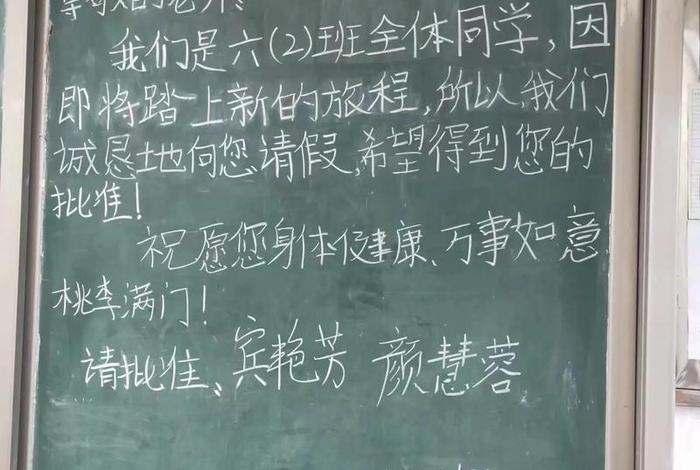 尊敬的老师:
我们是六(2)班全体同学,因
即将踏上新的旅程,所以,我们
诚恳地向您请假,希望得到您的
批准!
祝愿您身体健康、万事如意,
桃李满门!
请批准、宾艳芳 颜慧蓉